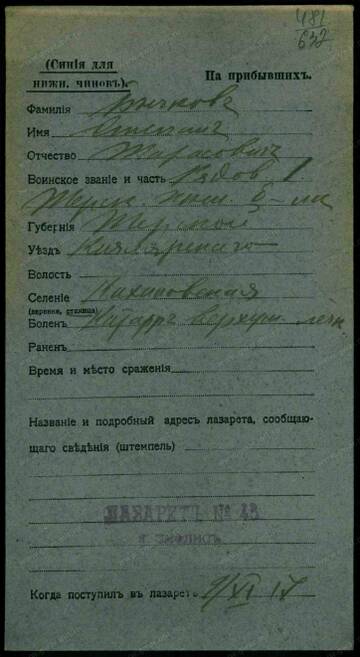 481
632
(Синія для
нижн. чиновъ).
На прибывшихъ.
Фамилія Бычковъ
Имя Степанъ
Отчество Тарасовичъ
Воинское званіе и часть Рядов. 1
Терск.
Губернія Терской
Уѣздъ
Волость
Селеніе
(деревня, станица)
Боленъ Катарръ верхуш. легк.
Раненъ
Время и мѣсто сраженія
Названіе и подробный адресъ лазарета, сообщаю-
щаго свѣдѣнія (штемпель)
ЛАЗАРЕТЪ № 43
Когда поступилъ в лазаретъ 1/XI 17